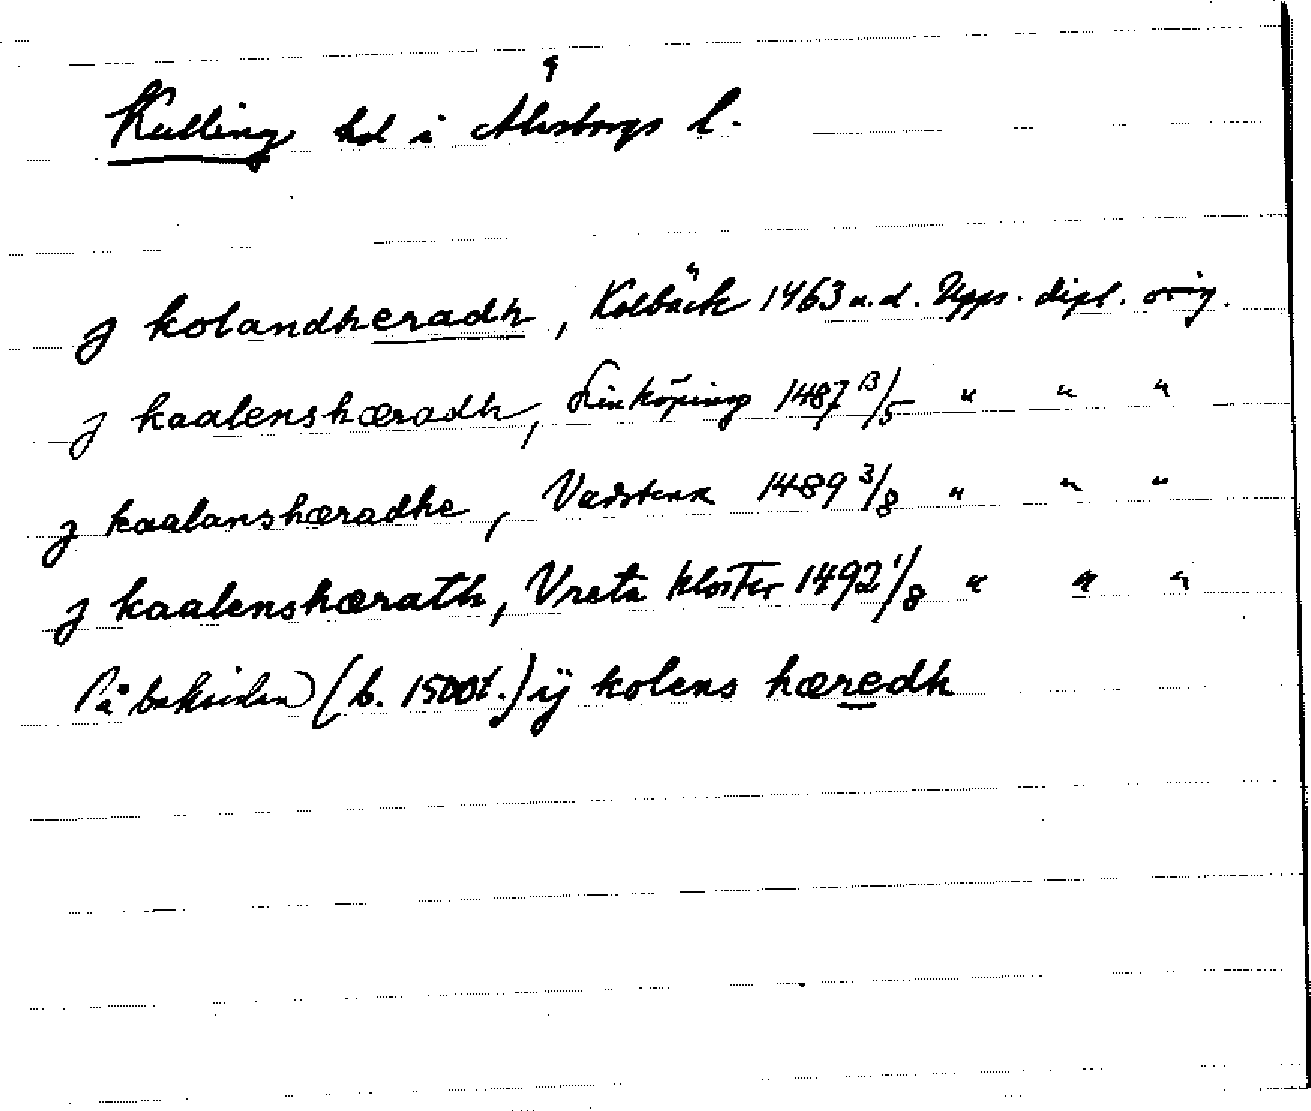 Kulling hd i Älvsborgs l.
j kolandheradh, Kolbäck 1463 u.d. Upps. dipl. orig.
j kaalenshæradh, Linköping 1487 13/5 " " "
j kaalanshæradhe, Vadstena 1489 3/8 " " "
j kaalenshærath, Vreta kloster 1492 1/8 " " "
På baksidan (b. 1500t.) ij kolens hæredh